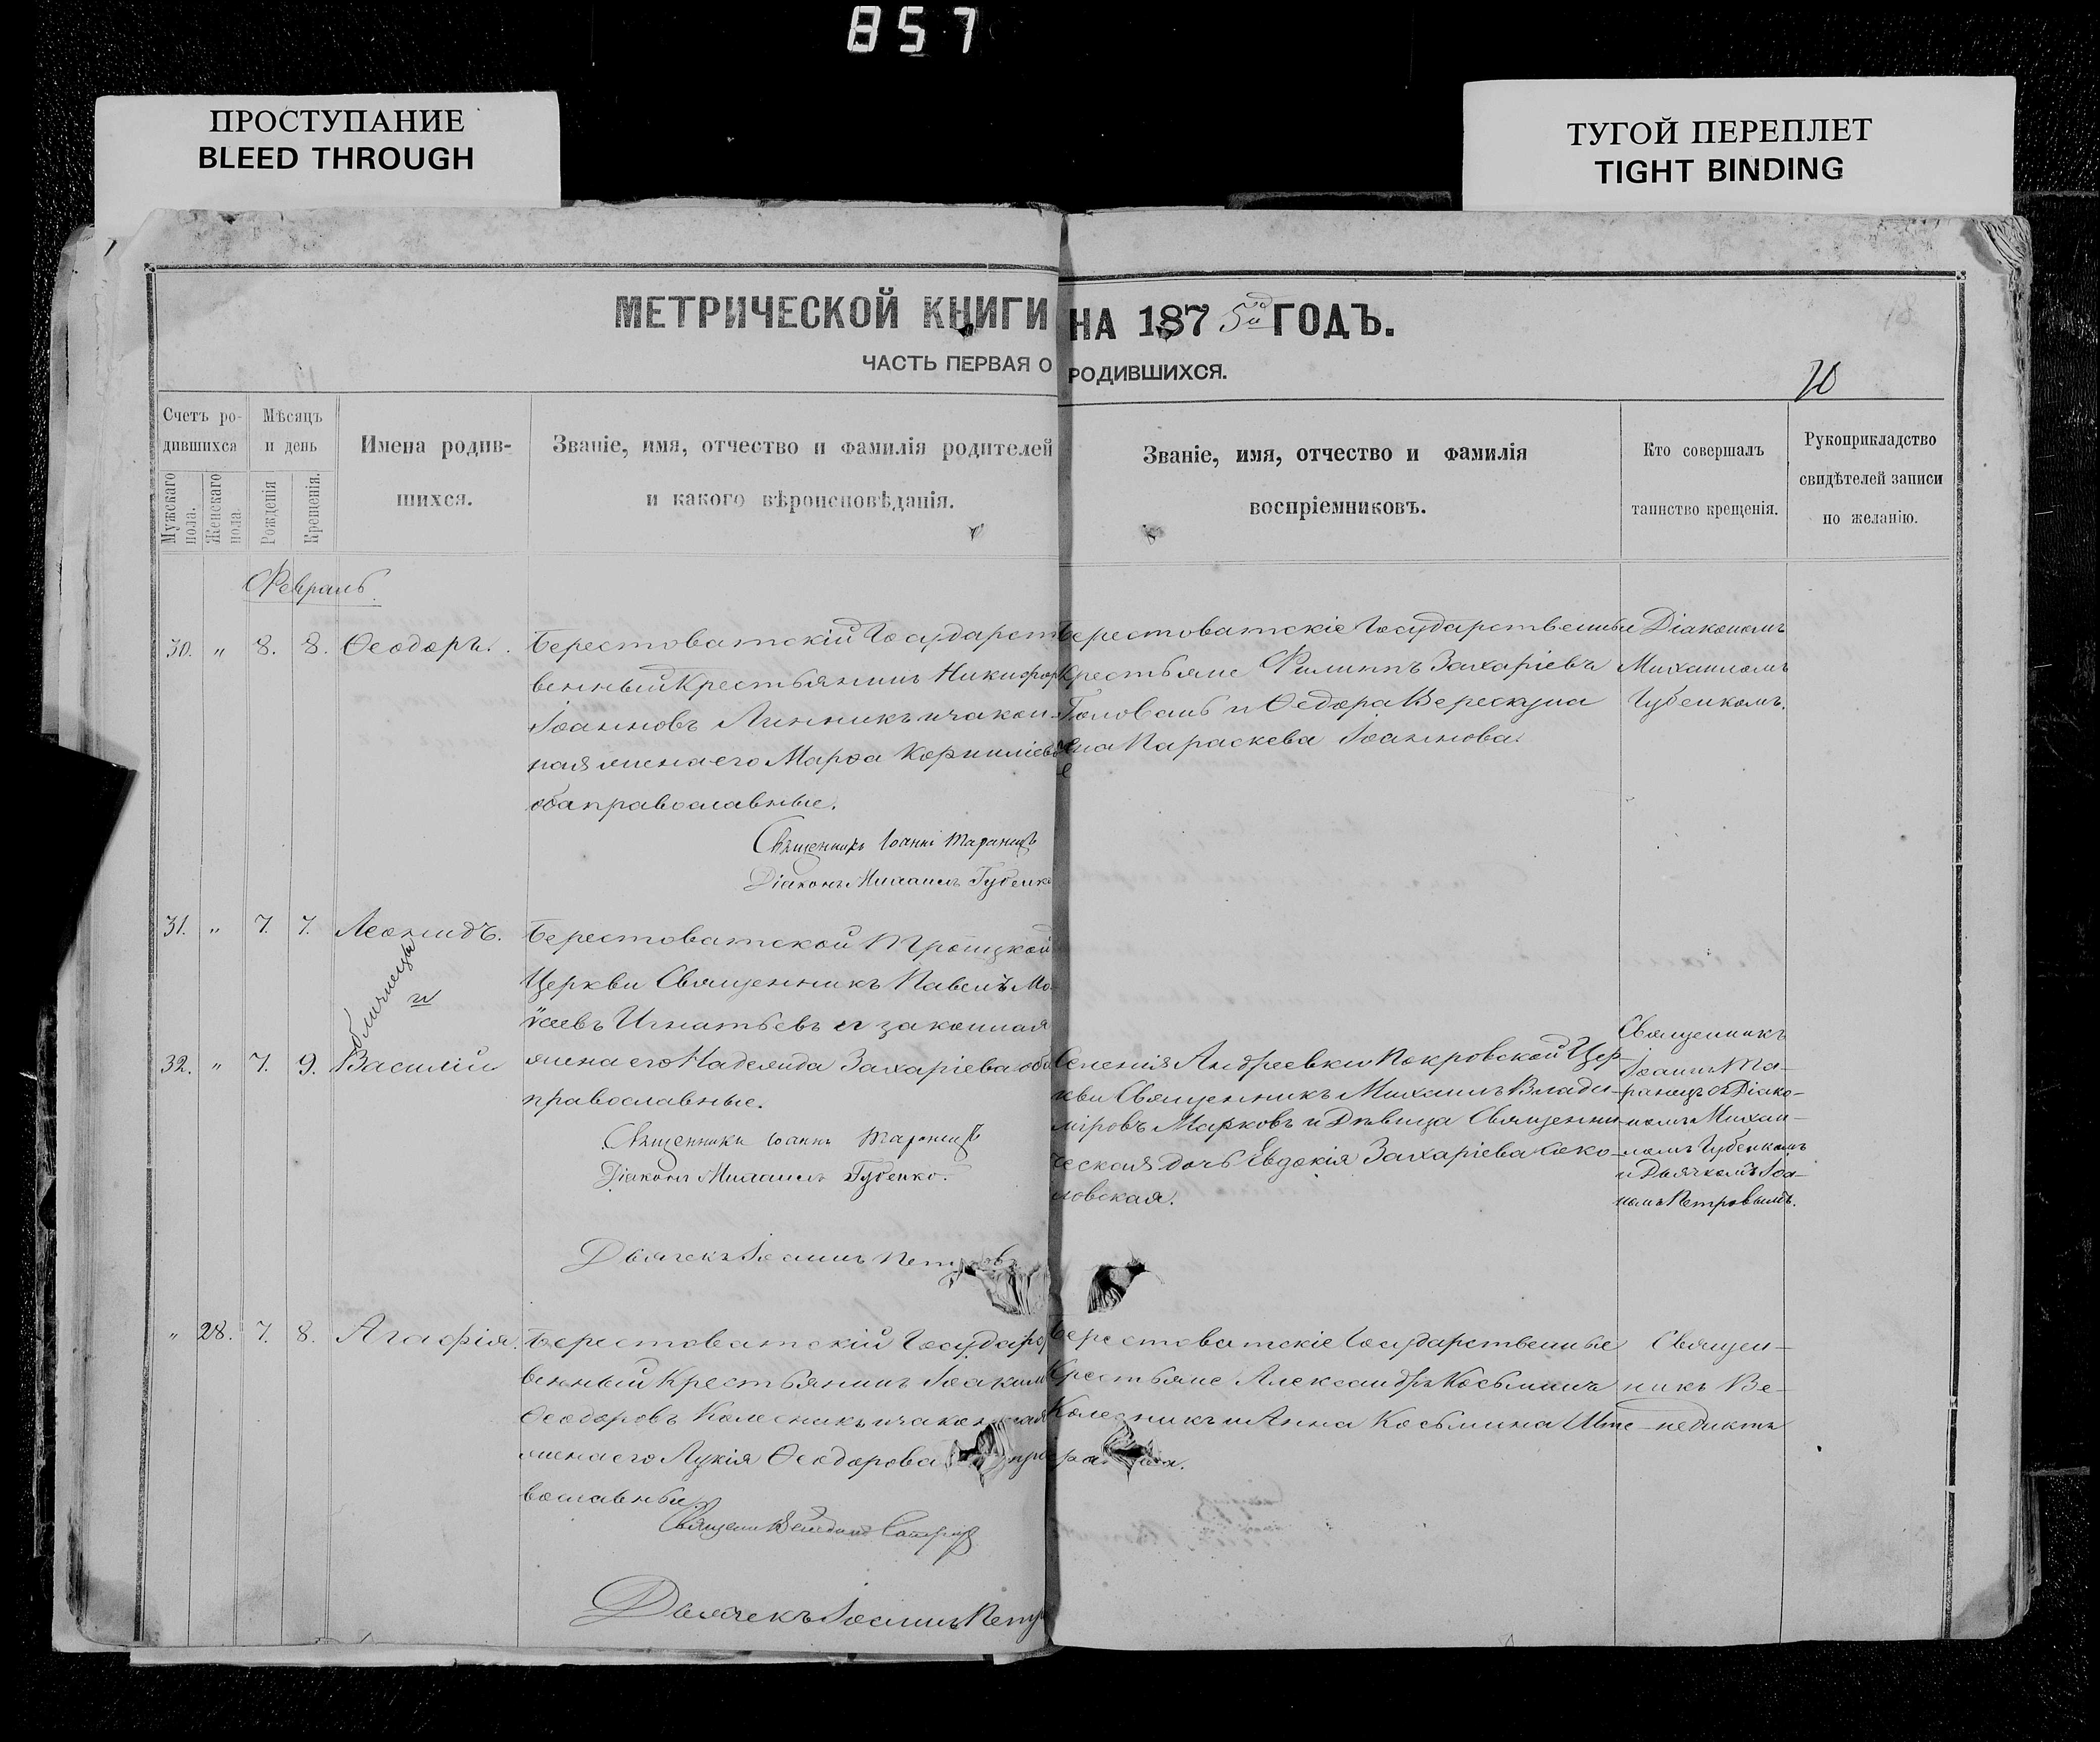 857
ПРОСТУПАНИЕ
BLEED THROUGH
ТУГОЙ ПЕРЕПЛЕТ
TIGHT BINDING
МЕТРИЧЕСКОЙ КНИГИ НА 1875й ГОДЪ.
ЧАСТЬ ПЕРВАЯ О РОДИВШИХСЯ.
20
Счетъ ро-
дившихся
Мужескаго пола.
Женскаго пола.
Мѣсяцъ
и день
Рожденія
Крещенія.
Имена родив-
шихся.
Званіе, имя, отчество и фамилія родителей
и какого вѣроисповѣданія.
Званіе, имя, отчество и фамилія
воспріемниковъ.
Кто совершалъ
таинство крещенія.
Рукоприкладство
свидѣтелей записи
по желанію.
Февраль
30. " 8. 8. Ѳеодоръ.
Берестоватскій Государст
венный Крестьянинъ Никифор
Іоанновъ Линникъ и закон
ная жена его Марѳа Корниліев
оба православные.
Священникъ Іоаннъ Таранецъ
Діаконъ Михаилъ Губенко
Берестоватскіе Государственные
Крестьяне Филиппъ Захаріевъ
Головань и Ѳедора Верескуна
жена Параскева Іоаннова.
Діакономъ
Михаиломъ
Губенкомъ.
31. " 7. 7. Леонидъ.
близнецы
и
32. " 7. 9. Василій
Берестоватской Троицкой
Церкви Священникъ Павелъ Мо
ѵсеевъ Игнатьевъ и законная
жена его Надежда Захаріева оба
православные.
Священникъ Іоаннъ Таранецъ
Діаконъ Михаилъ Губенко.
Дьячекъ Іоаннъ Петровъ
Селенія Андреевки Покровской Цер-
кви Священникъ Михаилъ Влади-
міровъ Марковъ и Дѣвица Священни-
ческая дочь Евдокія Захаріева Соко-
ловская.
Священникъ
Іоаннъ Та-
ранецъ съ Діако-
номъ Михаи-
ломъ Губенкомъ
и Дьячкомъ Іоа-
номъ Петровымъ.
" 28. 7. 8. Агафія.
Берестоватскій Государс
венный Крестьянинъ Іоаким
Ѳеодоровъ Колесникъ и законная
жена его Лукія Ѳеодорова пра
вославные
Священ Венедиктъ
Дьячекъ Іоаннъ Петр
Берестоватскіе Государственные
Крестьяне Александръ Косьминъ
Колесникъ и Анна Косьмина
Священ-
никъ Ве-
недиктъ